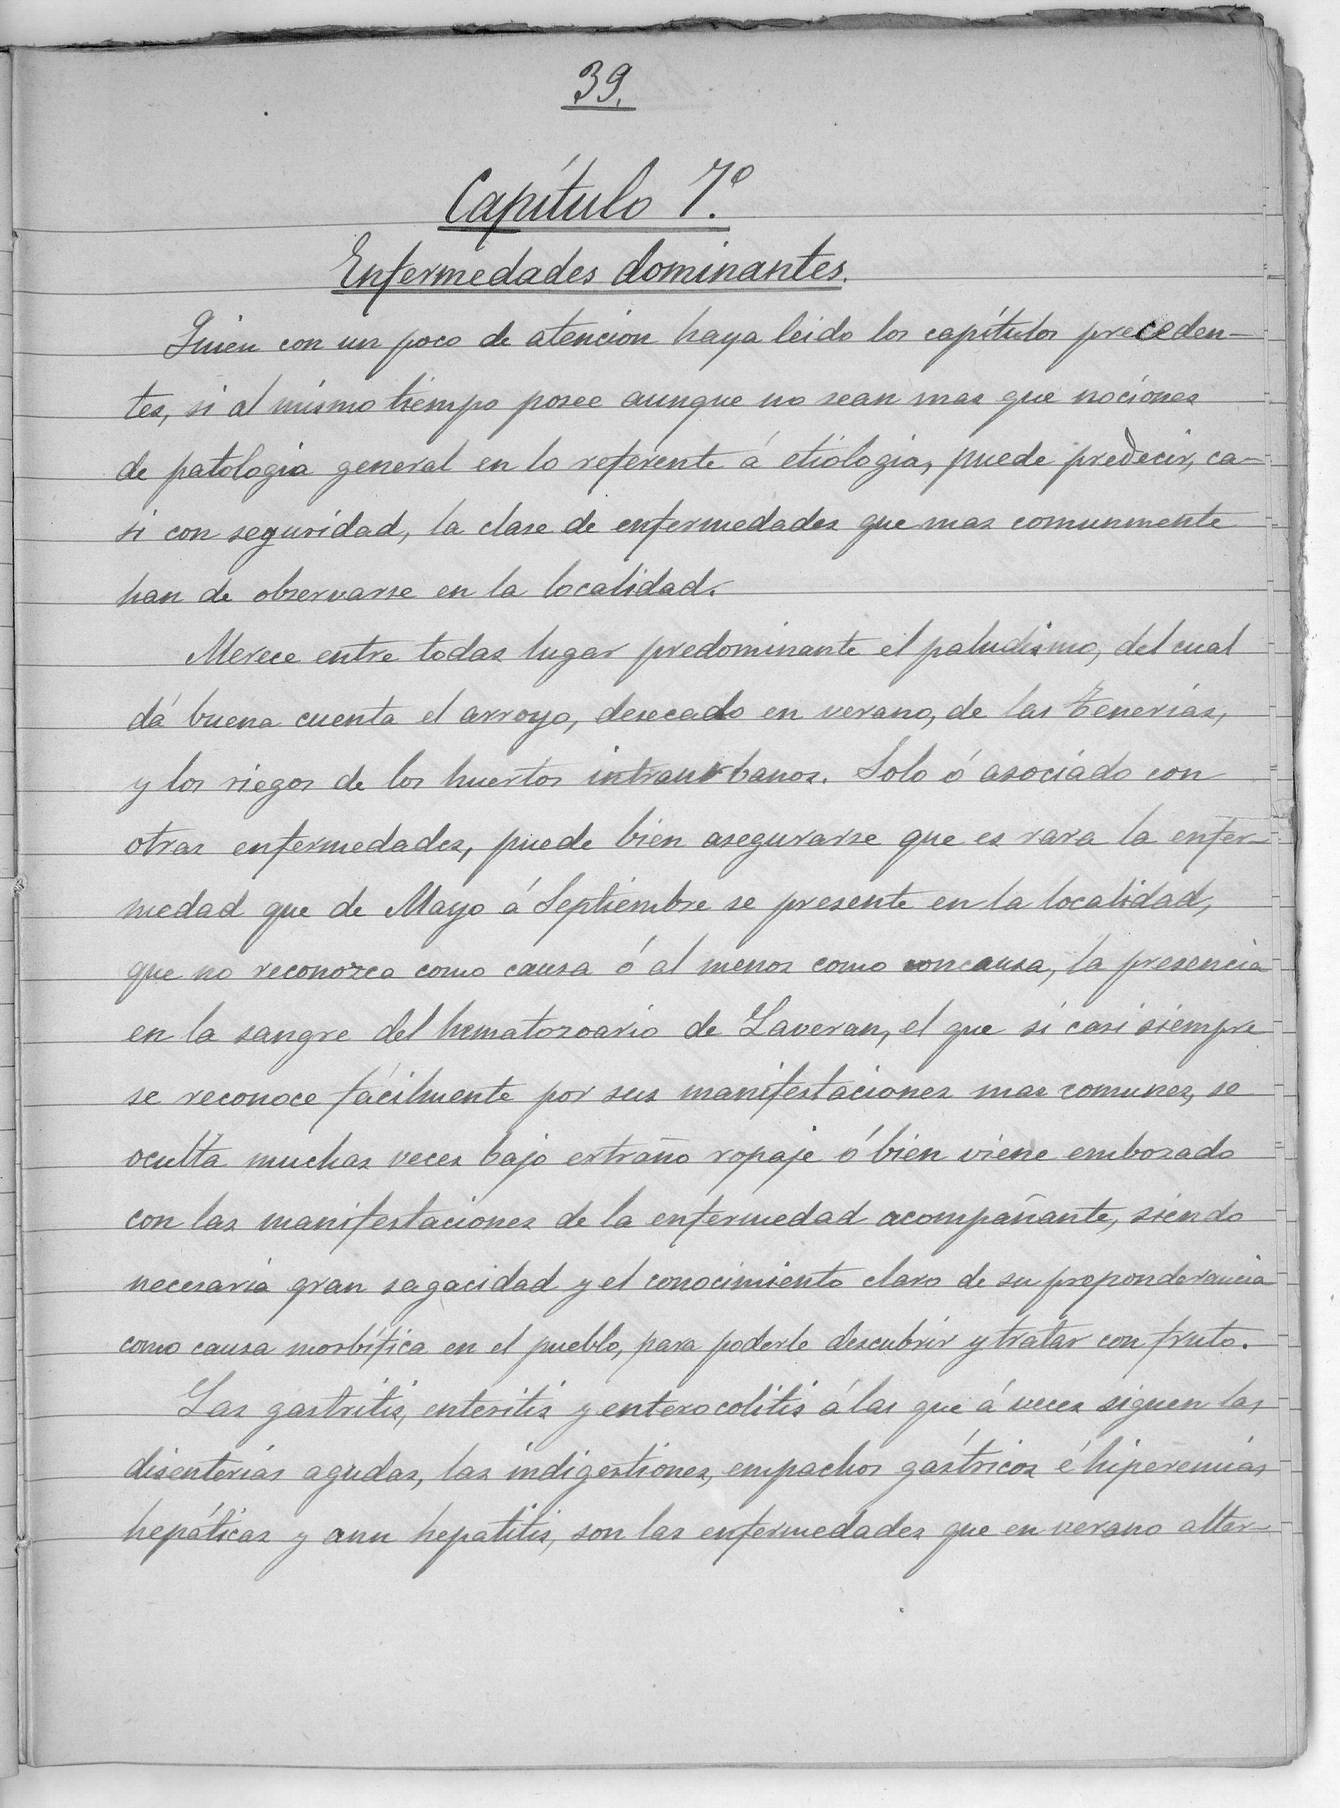 39.
Capítulo 7º.
Enfermedades dominantes.
Quien con un poco de atencion haya leido los capítulos preceden-
tes, si al mismo tiempo posee aunque no sean mas que nociones
de patologia general en lo referente á etiologia, puede predecir, ca-
si con seguridad, la clase de enfermedades que mas comunmente
han de observarse en la localidad.
Merece entre todas lugar predominante el paludismo, del cual
dá buena cuenta el arroyo, desecado en verano, de las Tenerias,
y los riegos de los huertos intraurbanos. Solo ó asociado con
otras enfermedades, puede bien asegurarse que es rara la enfer-
medad que de Mayo á Septiembre se presente en la localidad,
que no reconozca como causa ó al menos como concausa, la presencia
en la sangre del hematozoario de Laveran, el que si casi siempre
se reconoce fácilmente por sus manifestaciones mas comunes, se
oculta muchas veces bajo extraño ropaje ó bien viene embozado
con las manifestaciones de la enfermedad acompañante, siendo
necesaria gran sagacidad y el conocimiento claro de su preponderancia
como causa morbífica en el pueblo, para poderle descubrir y tratar con fruto.
Las gastritis, enteritis y enterocolitis á las que á veces siguen las
disenterias agudas, las indigestiones, empachos gástricos é hiperemias
hepáticas y aun hepatitis, son las enfermedades que en verano alter-